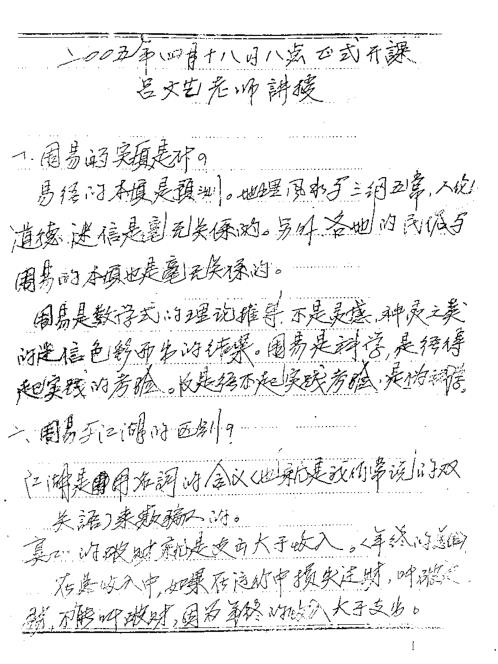 二〇〇五年四月十八日八点正式开课
吕文艺老师讲授
一、周易的实质是什。
易经的本质是预测。地理风水与三纲五常,人伦
道德 迷信是毫无关系的。另外 各地的民俗与
周易的本质也是毫无关系的。
周易是数学式的理论推导,不是灵感、神灵之类
的迷信色彩而出的结果。周易是科学,是经得
起实践的考验。凡是经不起实践考验,是伪科学。
二、周易与江湖的区别?
江湖是用名词的会议(也就是我们常说的双
关语)来欺骗人的。
真正的破财就是支出大于收入。(年终的总结)
在其收入中,如果在运作中损失过财,叫破
不能叫破财,因为年终的收入大于支出。
1